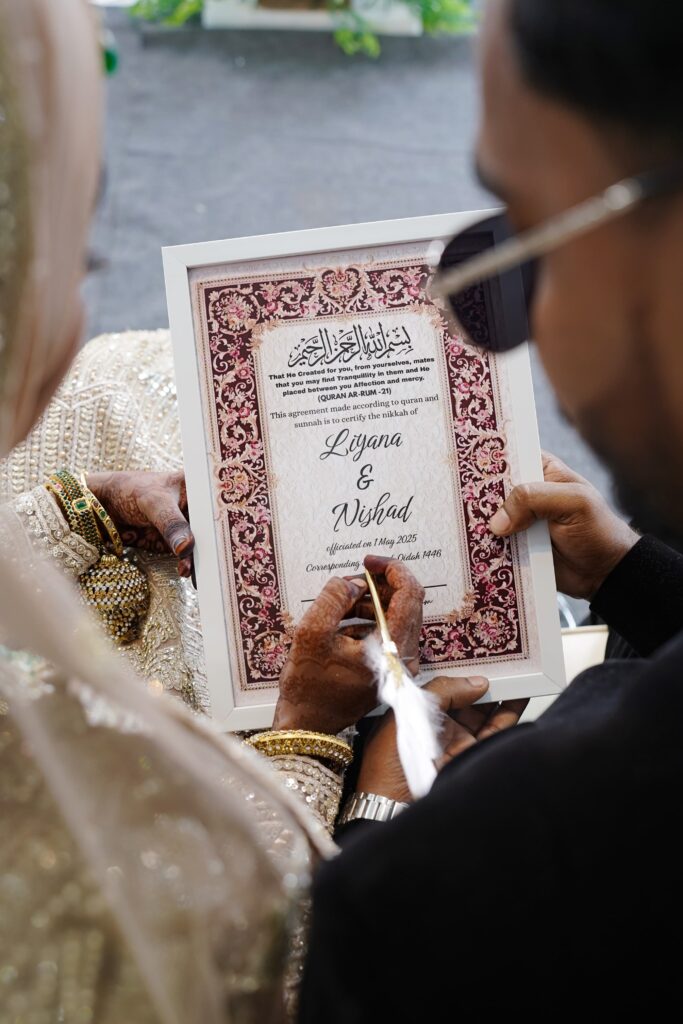 بسم الله الرحمن الرحيم
That He Created for you, from yourselves, mates
that you may find Tranquillity in them and He
placed between you Affection and mercy.
(QURAN AR-RUM -21)
This agreement made according to quran and
sunnah is to certify the nikkah of
Liyana
&
Nishad
officiated on 1 May 2025
Corresponding Qidah 1446